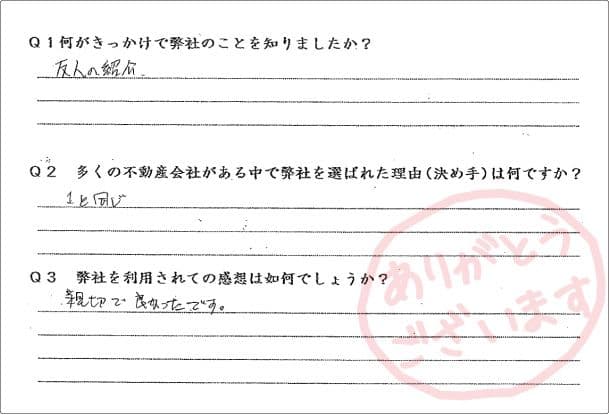 Q1何がきっかけで弊社のことを知りましたか？
友人の紹介.
Q2 多くの不動産会社がある中で弊社を選ばれた理由(決め手)は何ですか？
1と同じ
Q3 弊社を利用されての感想は如何でしょうか？
親切で良かったです。
ありがとう
ございます